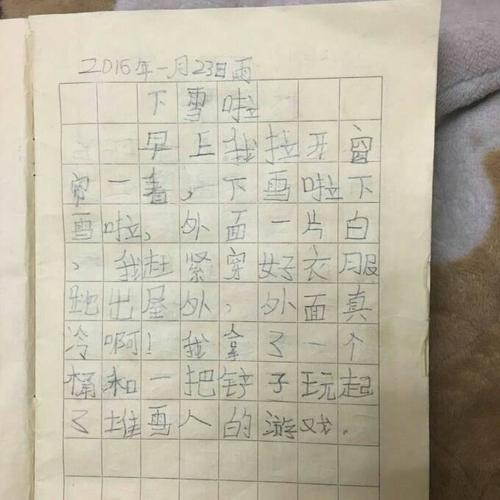 2016年一月23日雨
下雪啦
早上我拉开窗
帘一看,下雪啦下
雪啦,外面一片白
,我赶紧穿好衣服
跑出屋外,外面真
冷啊!我拿了一个
桶和一把铲子玩起
了堆雪人的游戏.